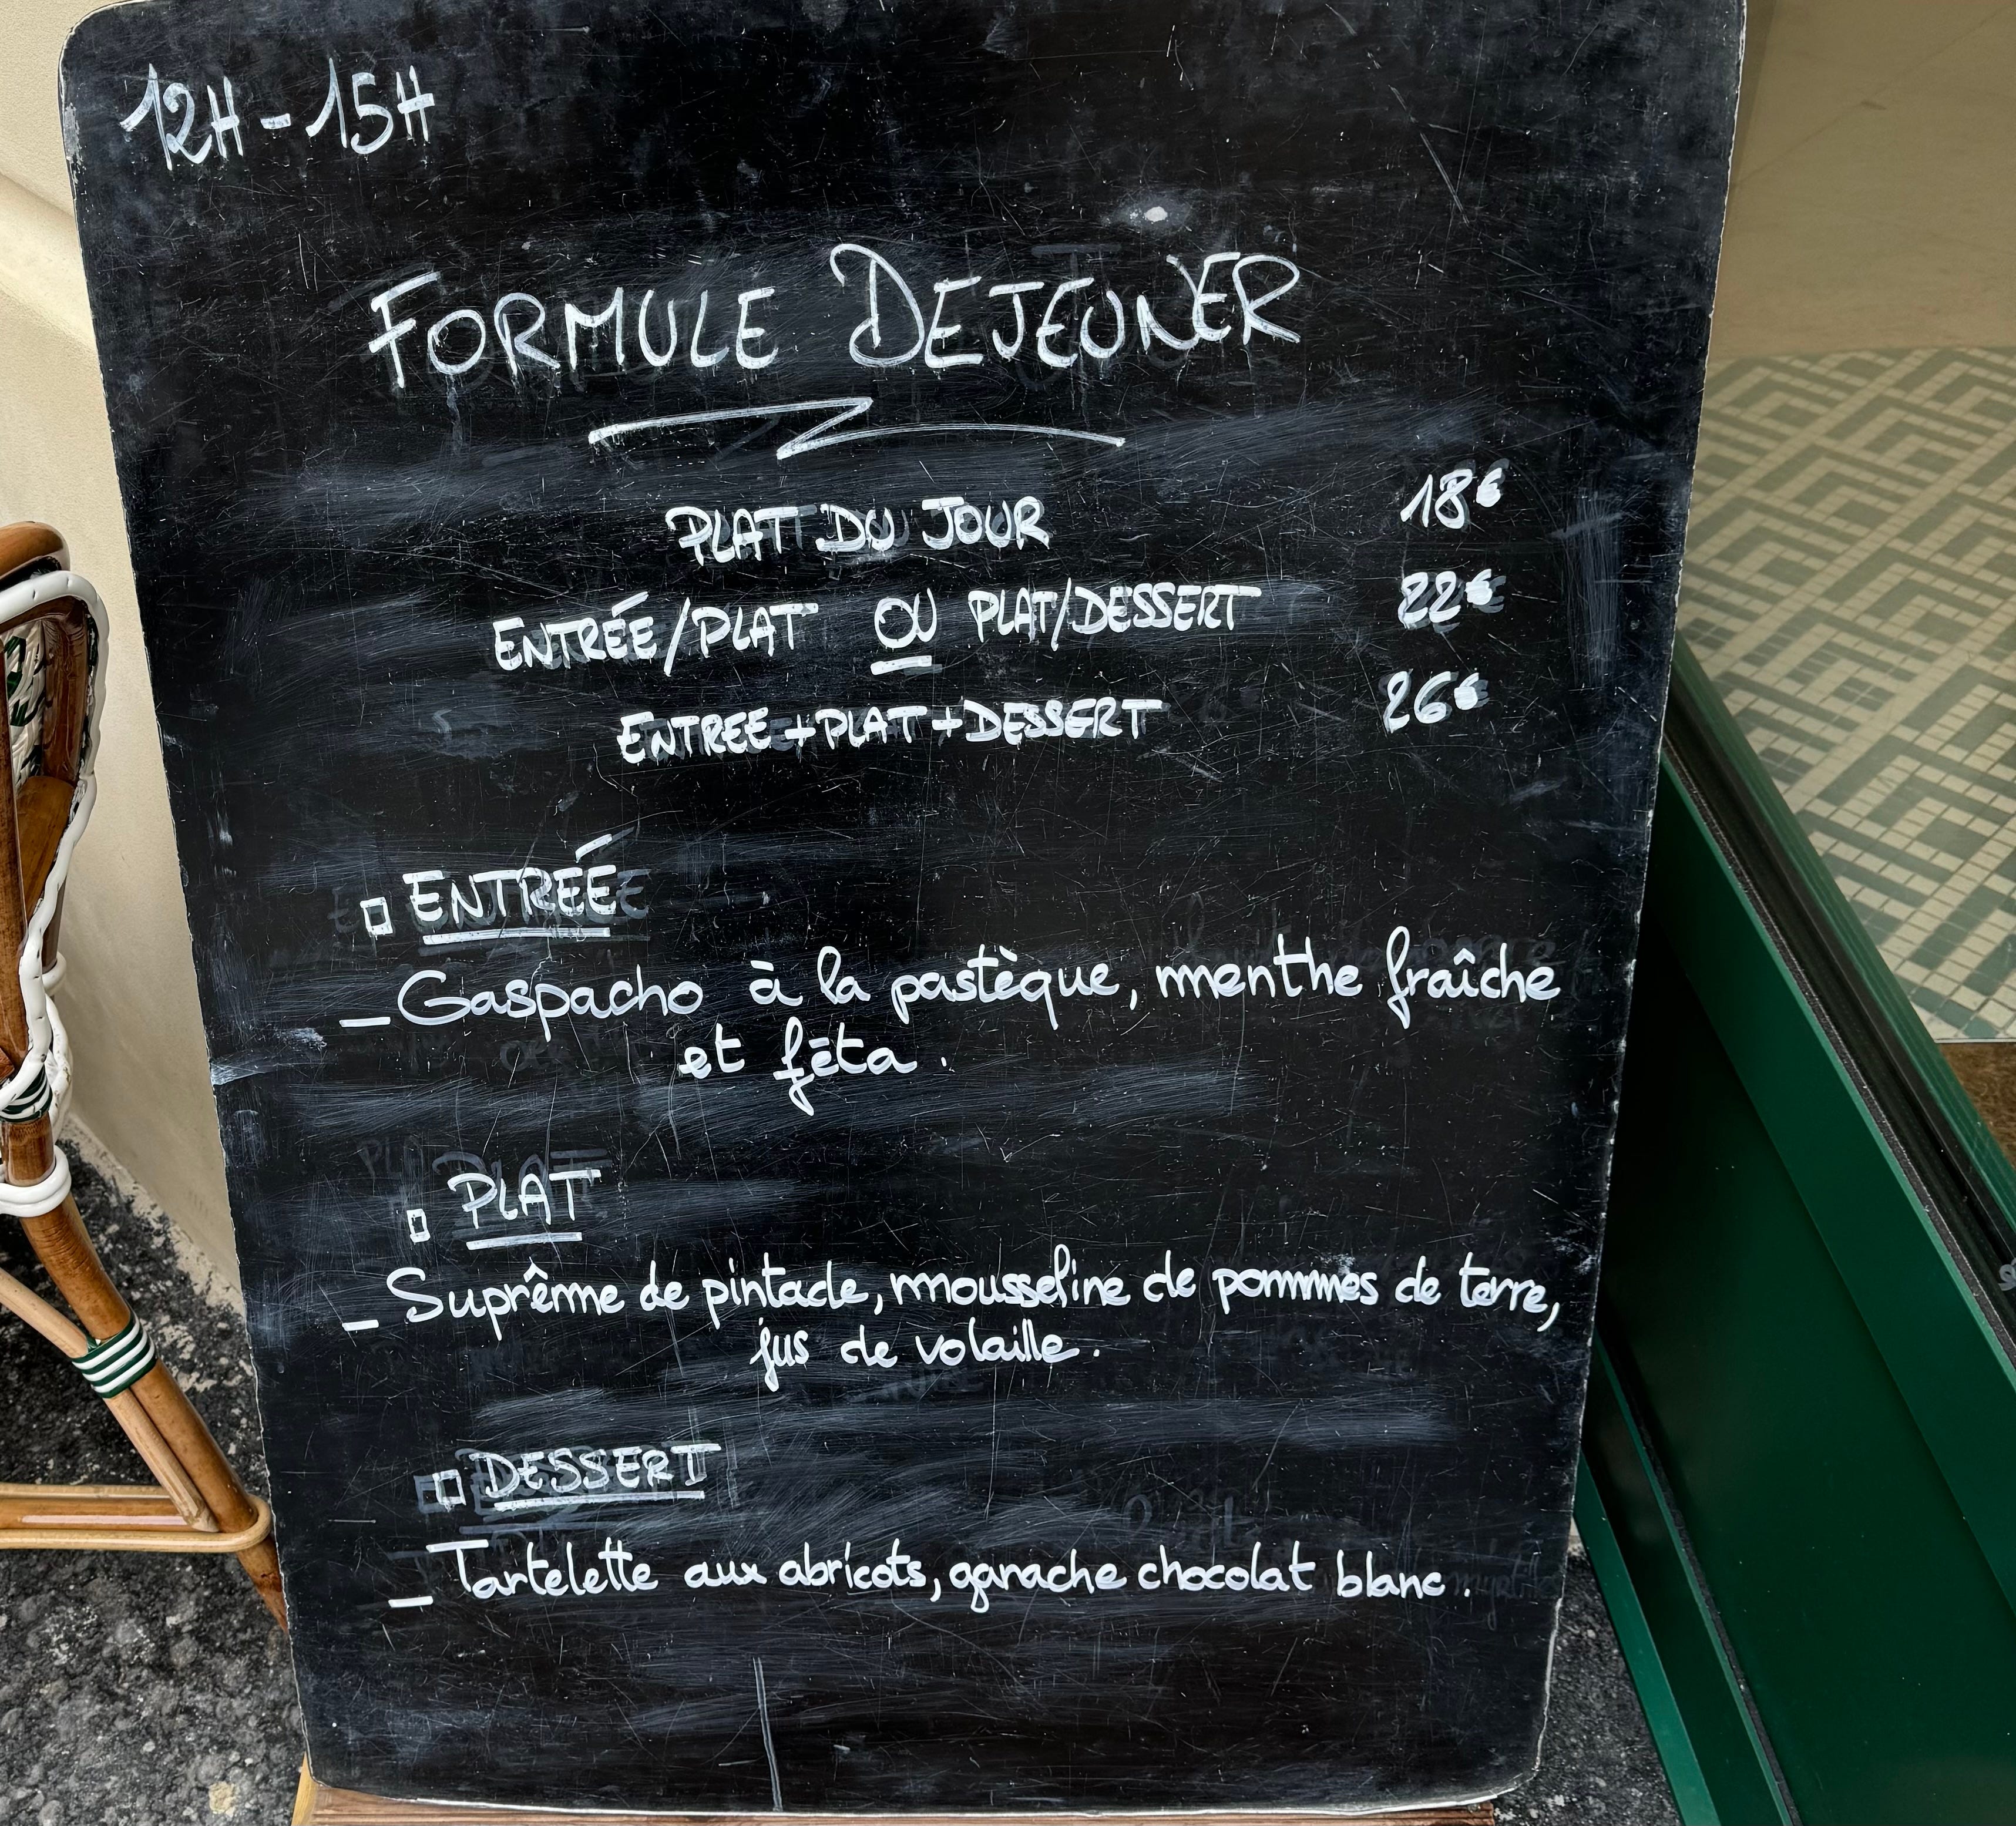 12H - 15H
FORMULE DEJEUNER
PLAT DU JOUR 18€
ENTRÉE/PLAT OU PLAT/DESSERT 22€
ENTREE+PLAT+DESSERT 26€
ENTREÉ
_ Gaspacho à la pastèque, menthe fraîche
et fēta.
PLAT
_ Suprême de pintade, mousseline de pommes de terre,
jus de volaille.
DESSERT
_ Tartelette aux abricots, ganache chocolat blanc.